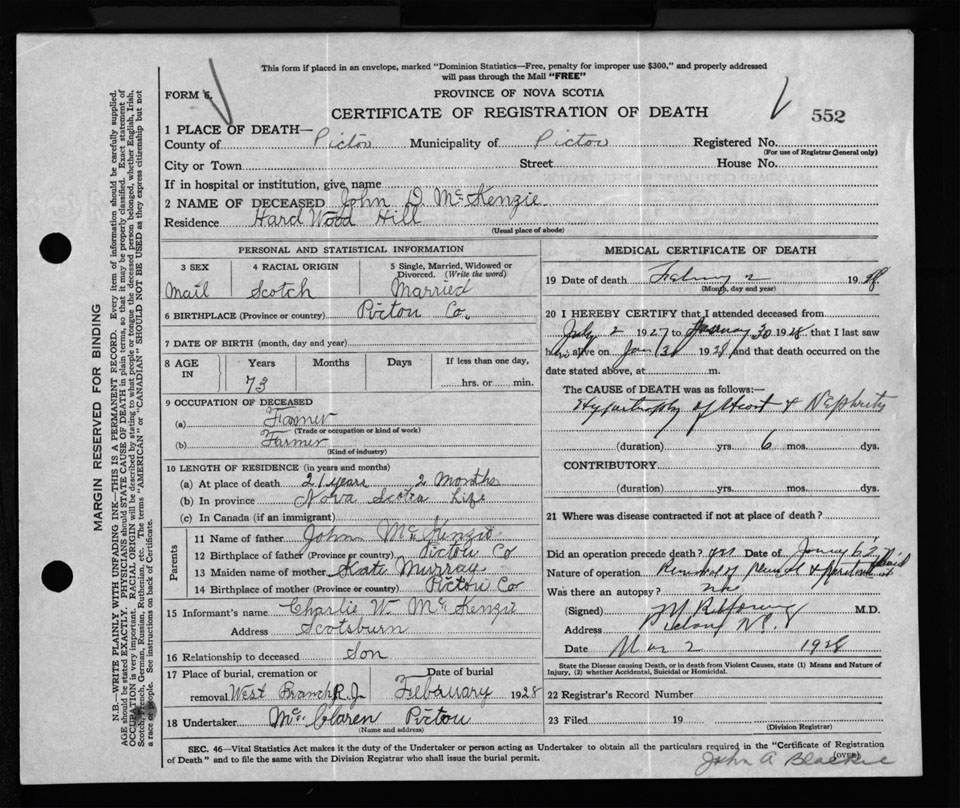 This form if placed in an envelope, marked "Dominion Statistics—Free, penalty for improper use $300," and properly addressed
will pass through the Mail "FREE"
FORM 6.
PROVINCE OF NOVA SCOTIA
CERTIFICATE OF REGISTRATION OF DEATH
552
1 PLACE OF DEATH—
County of Pictou Municipality of Pictou Registered No.
(For use of Registrar General only)
City or Town Street House No.
If in hospital or institution, give name
2 NAME OF DECEASED John D. McKenzie.
Residence Hard Wood Hill
(Usual place of abode)
PERSONAL AND STATISTICAL INFORMATION
3 SEX 4 RACIAL ORIGIN 5 Single, Married, Widowed or
Divorced. (Write the word)
Mail Scotch Married
6 BIRTHPLACE (Province or country) Pictou Co.
7 DATE OF BIRTH (month, day and year)
8 AGE IN Years Months Days If less than one day,
73 hrs. or min.
9 OCCUPATION OF DECEASED
(a) Farmer
(Trade or occupation or kind of work)
(b) Farmer
(Kind of industry)
10 LENGTH OF RESIDENCE (in years and months)
(a) At place of death 21 years 2 Months
(b) In province Nova Scotia Life
(c) In Canada (if an immigrant)
Parents
11 Name of father John McKenzie
12 Birthplace of father (Province or country) Pictou Co
13 Maiden name of mother Kate Murray
14 Birthplace of mother (Province or country) Pictou Co
15 Informant's name Charlie W. McKenzie
Address Scotsburn
16 Relationship to deceased Son
17 Place of burial, cremation or Date of burial
removal West Branch R.J. February 1928
18 Undertaker McClaren Pictou
(Name and address)
MEDICAL CERTIFICATE OF DEATH
19 Date of death 2 1928
(Month, day and year)
20 I HEREBY CERTIFY that I attended deceased from
July 2 1927 to January 30 1928 that I last saw
him alive on Jan 1928 and that death occurred on the
date stated above, at m.
The CAUSE of DEATH was as follows:—
Hypertrophy of Heart & Nephritis
(duration) yrs. 6 mos. dys.
CONTRIBUTORY.
(duration) yrs. mos. dys.
21 Where was disease contracted if not at place of death?
Did an operation precede death? yes Date of
Nature of operation Removal of
Was there an autopsy? no
(Signed) M.D.
Address
Date Mar 2 1928
State the Disease causing Death, or in death from Violent Causes, state (1) Means and Nature of
Injury, (2) whether Accidental, Suicidal or Homicidal.
22 Registrar's Record Number
23 Filed 19
(Division Registrar)
SEC. 46—Vital Statistics Act makes it the duty of the Undertaker or person acting as Undertaker to obtain all the particulars required in the "Certificate of Registration
of Death" and to file the same with the Division Registrar who shall issue the burial permit.
(over)
John A Blackie
MARGIN RESERVED FOR BINDING
N.B.—WRITE PLAINLY WITH UNFADING INK—THIS IS A PERMANENT RECORD. Every item of information should be carefully supplied.
AGE should be stated EXACTLY. PHYSICIANS should STATE CAUSE OF DEATH in plain terms, so that it may be properly classified. Exact statement of
OCCUPATION is very important. RACIAL ORIGIN will be described by stating to what people or tongue the deceased person belonged, whether English, Irish,
Scotch, French, German, Russian, Ruthenian, etc. The terms "AMERICAN" or "CANADIAN" SHOULD NOT BE USED as they express citizenship but not
a race or people. See instructions on back of Certificate.